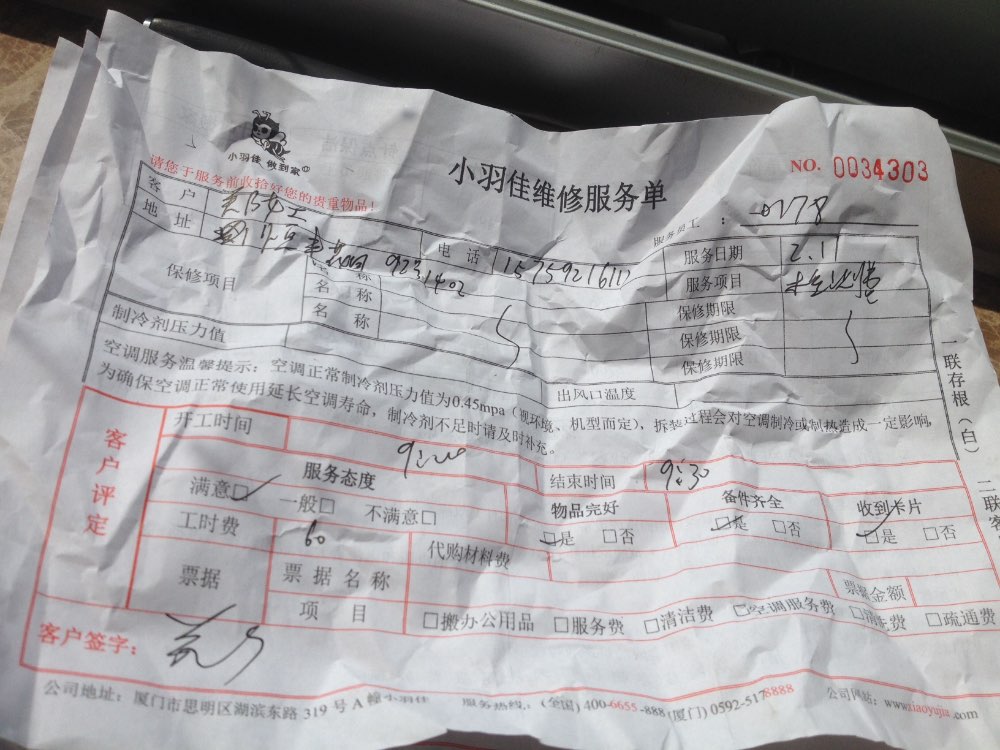 小羽佳 做到家
小羽佳维修服务单
NO. 0034303
请您于服务前收拾好您的贵重物品！
服务员工： 0178
客户 女士 电话 15759216111 服务日期 2.17
地址 服务项目
保修项目 名称 保修期限
名称 保修期限
名称 保修期限
制冷剂压力值 出风口温度
空调服务温馨提示：空调正常制冷剂压力值为0.45mpa（视环境、机型而定），拆装过程会对空调制冷或制热造成一定影响，
为确保空调正常使用延长空调寿命，制冷剂不足时请及时补充。
一联存根（白）
二联
客户评定
开工时间 9:20 结束时间 9:30
服务态度 物品完好 备件齐全 收到卡片
满意□ 一般□ 不满意□ □是 □否 □是 □否 □是 □否
工时费 60 代购材料费
票据 票据名称 票据金额
项目 □搬办公用品 □服务费 □清洁费 □空调服务费 □清洗费 □疏通费
客户签字：
公司地址：厦门市思明区湖滨东路 319 号 A 幢小羽佳 服务热线：(全国) 400-6655-888 (厦门) 0592-5178888 公司网站：www.xiaoyujia.com